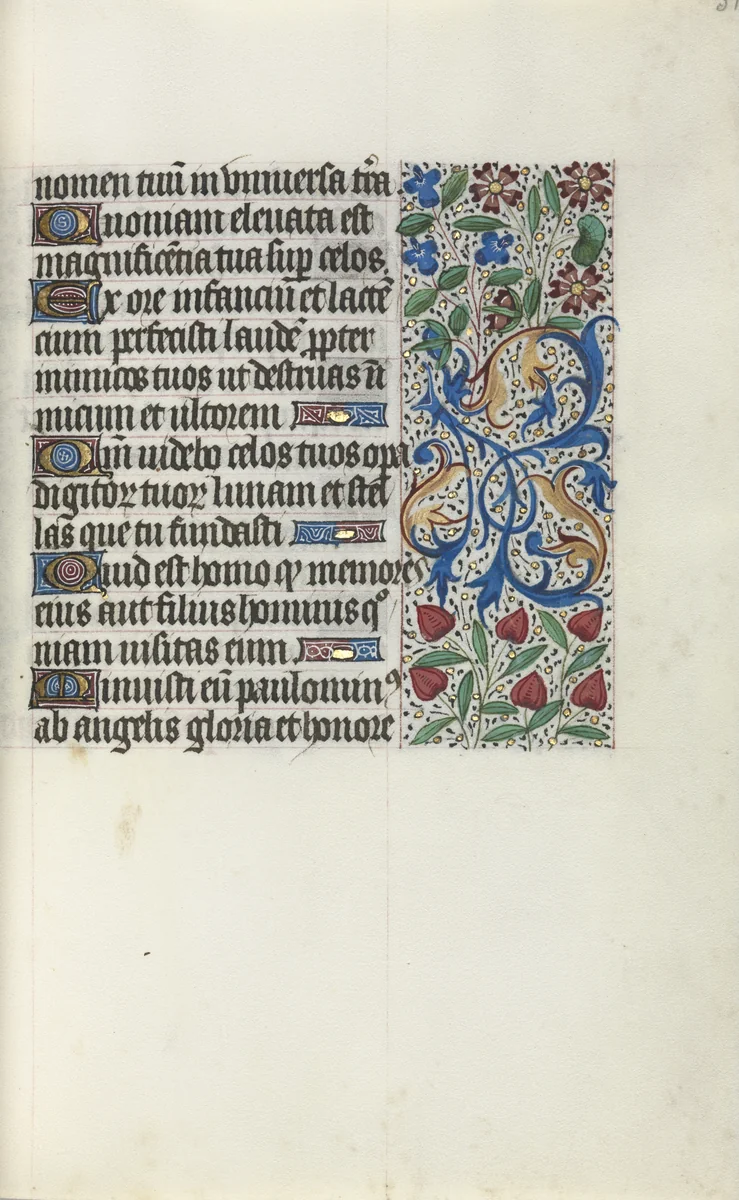 nomen tuū in vniuersa tr̄a
Quoniam eleuata est
magnificētia tua suꝑ celos.
Ex ore infanciū et lactē
cium perfecisti laudē ꝓpter
inimicos tuos ut destruas īi
micum et ultorem
Qm̄ uidebo celos tuos opa
digitoꝝ tuoꝝ lunam et stel
las que tu fundasti
Quid est homo ꝙ memores
eius aut filius hominis qº
niam uisitas eum
Minuisti eū paulominꝰ
ab angelis gloria et honore